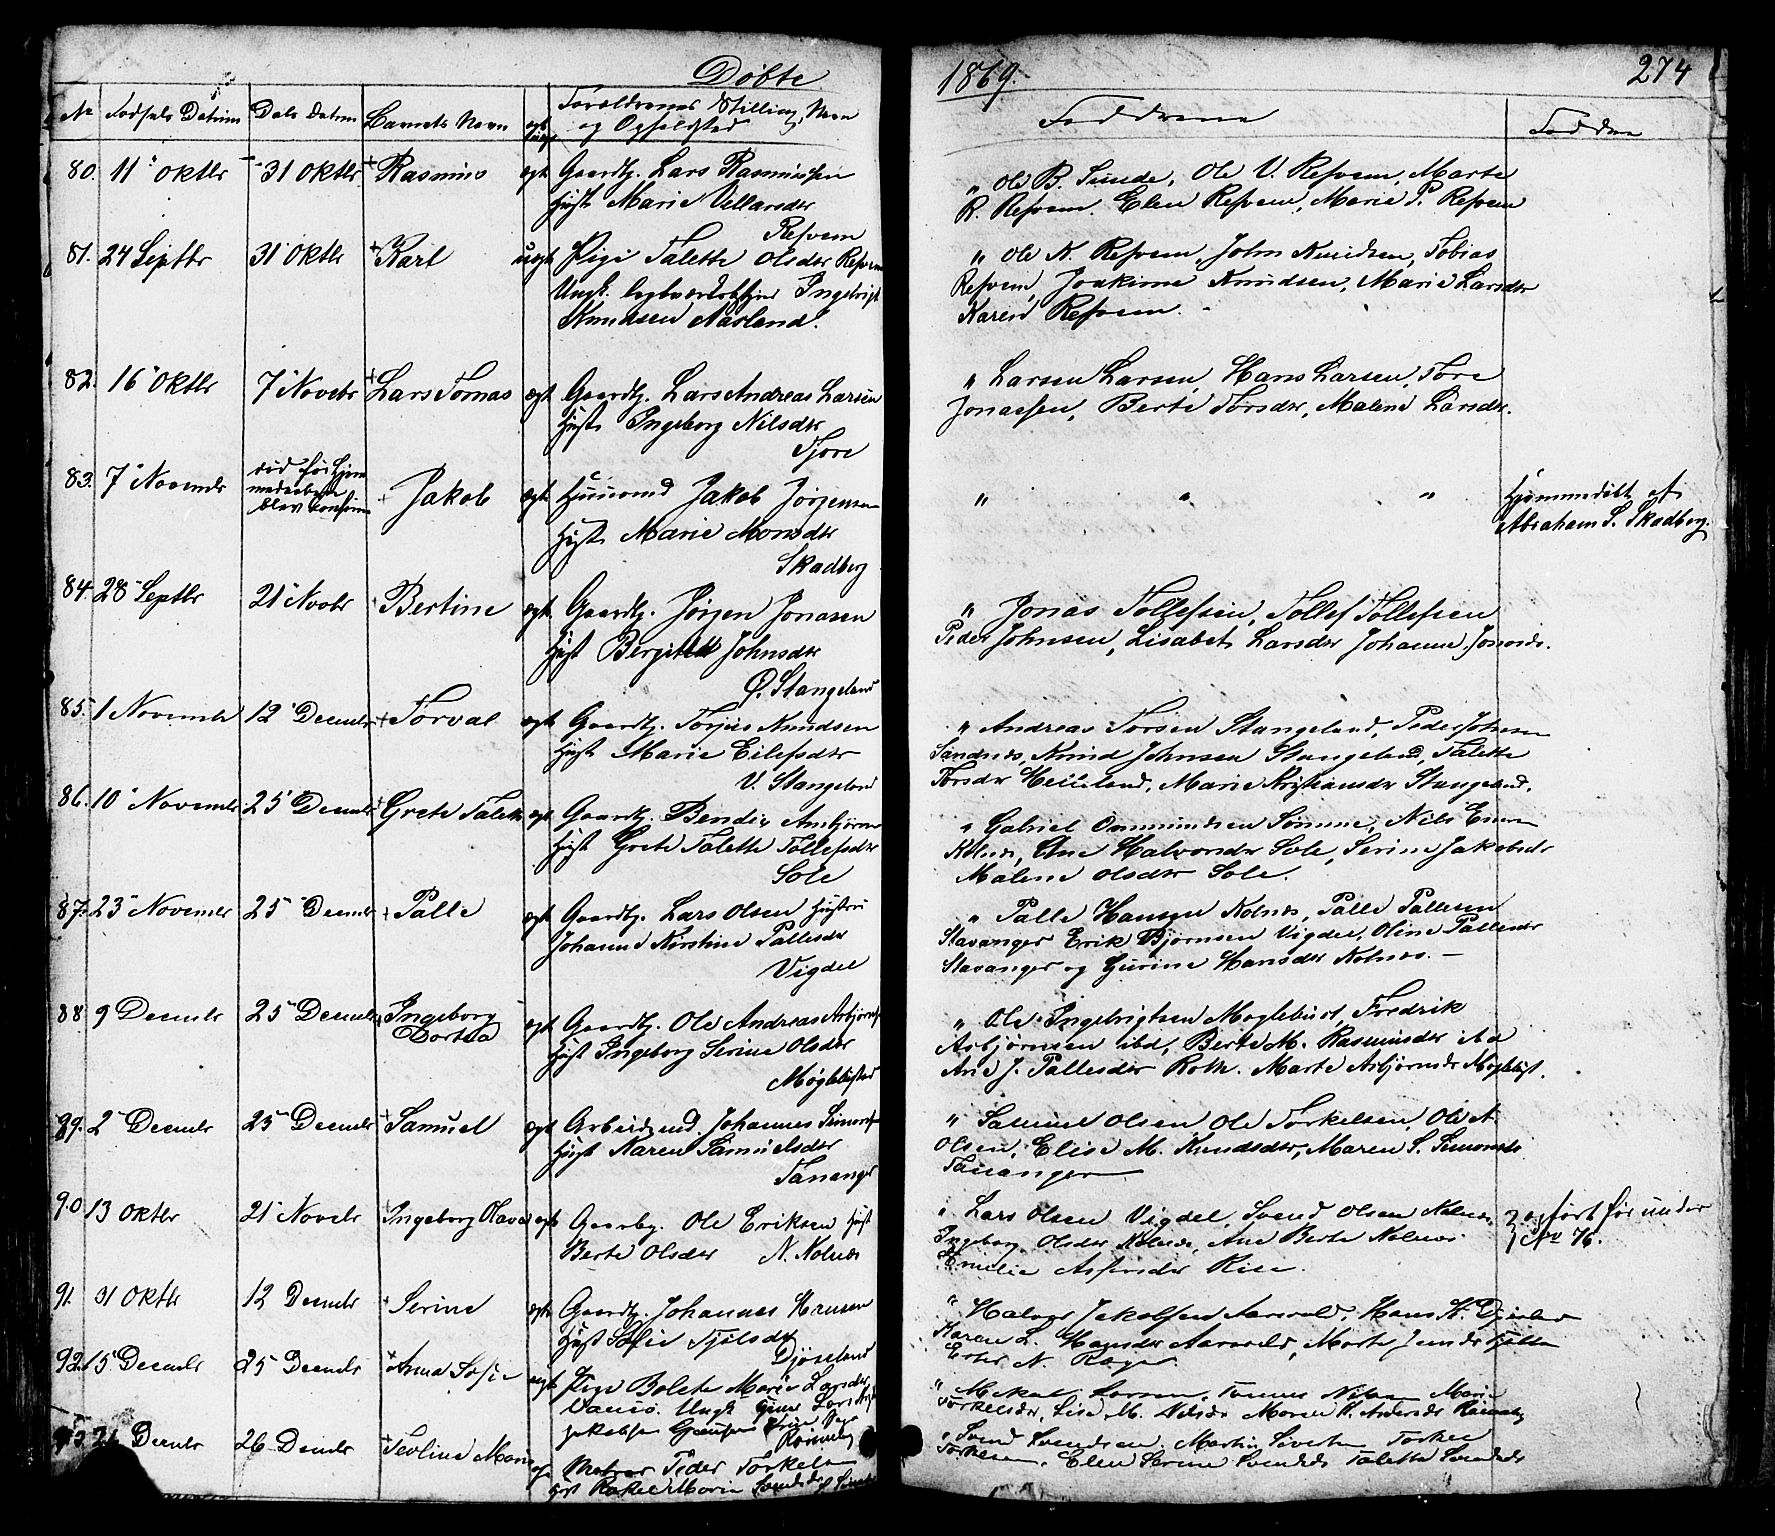 Døbte
1869.
274
No Fødsels Datum Daabs Datum Barnets Navn ægt Forældrenes Stilling, Navn
og Opholdsted
Faddrene
Faddere
80. 11 Oktbr 31 Oktbr Rasmus ægt Gaardbr. Lars Rasmussen
Hust Marie Vellarsdtr
Refvem
" Ole B. Sunde, Ole V. Refvem, Marte
R. Refvem. Elen Refvem, Marie P. Refvem
81. 24 Septbr 31 Oktbr Karl uægt Pige Talette Olsdtr Refvem
Ungk. Ingebrigt
Knudsen Narland.
" Ole N. Refvem, John Knudsen, Tobias
Refvem, Joakime Knudsen, Marie Larsdtr
Karen Refvem.
82. 16 Oktbr 7 Novebr Lars Tomas ægt Gaardbr. Lars Andreas Larsen
Hust Ingeborg Nilsdtr
Tjore
" Larsen Larsen, Hans Larsen, Tore
Jonassen, Berte Torsdtr, Malene Larsdtr.
83. 7 November død før Hjem
medaaben
blev konfirm Jakob ægt Husmand Jakob Jørgensen
Hust Marie Monsdtr
Skadberg
" " "
Hjemmedøbt af
Abraham S. Skadberg.
84. 28 Septbr 21 Novbr Bertine ægt Gaardbr. Jørgen Jonasen
Hust Bergitte Johnsdtr
Ø. Stangeland
" Jonas Tollefsen, Tollef Tollefsen
Peder Johnsen, Lisabet Larsdtr Johanne Jonasd.
85. 1 November 12 Decembr Torval ægt Gaardbr. Torjus Knudsen
Hust Marie Eilefsdtr
V. Stangeland
" Andreas Torsen Stangeland, Peder Johnsen
Sandnes, Knud Johnsen Stangeland, Talette
Torsdtr Helleland, Marie Kristiansdtr Stangeland.
86. 10 November 25 Decembr Grete Talette ægt Gaardbr. Bendix Ambjørnsen
Hust Grete Talette Tollefsdtr
Sole
" Gabriel Ommundsen Sømme, Nils
Kolnes, Ane Halvorsdtr Sole, Serine Jakobsdtr
Malene Olsdtr Sole.
87. 23 November 25 Decembr Palle ægt Gaardbr. Lars Olsen Hustru
Johanne Kirstine Pallesdtr
Vigdel
" Palle Hansen Kolnes, Palle Pallesen
Stavanger Erik Bjørnsen Vigdel, Oline Pallesdtr
Stavanger og Gurine Hansdtr Kolnes. -
88 9 Decembr 25 Decembr Ingeborg
Dortea ægt Gaardbr. Ole Andreas Asbjørnsen
Hust Ingeborg Serine Olsdtr
Møglebust
" Ole Ingebrigtsen Møglebust, Fredrik
Asbjørnsen ibd, Berte M. Rasmusdtr ibd
Ane J. Pallesdtr Roth. Marte Asbjørnsdtr Møglebust.
89. 2 Decembr 25 Decembr Samuel ægt Arbeidsmd. Johannes Simonsen
Hust Karen Samuelsdtr
Tananger
" Samuel Olsen, Ole Torkelsen, Ole A.
Olsen, Elise M. Knudsdtr, Maren S. Simonsdtr
Tananger
90 13 Oktbr 21 Novebr Ingeborg Olava ægt Gaardbr. Ole Eriksen Hust
Berte Olsdtr N. Kolnes
" Lars Olsen Vigdel, Svend Olsen Kolnes,
Ingeborg Olsdtr Kolnes, Ane Berte Kolnes
Emilie Risa.
opført før under
No 76.
91. 31 Oktbr 12 Decembr Serine ægt Gaardbr. Johannes Hansen
Hust Sofie
Djøseland
" Halvor Jakobsen, Hans H. Djøseland
Karen L. Hansdtr, Marte
Ester N. Ræge
92. 15 Decembr 25 Decembr Anna Sofie uægt Pige Bolette Marie Larsdtr
Ungk
Jakobsen
" Larsen, Tomas Nilsen Marie
Torkelsdtr, Lise M. Nilsdtr Maren
93. Decmbr 26 Decmbr Teoline Marie ægt Matros Peder Torkelsen
Hust Rakel Marie Svendsdtr
" Svend Svendsen, Martin
Torkelsen, Elen Serine Svendsdtr Talette Svendsdtr